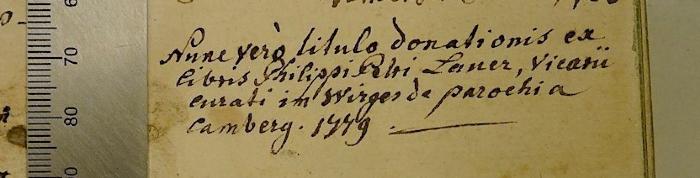 Nunc verò titulo donationis ex
libris Philippi Petri Lauer, Vicarii
curati in Wirges de parochia
Camberg. 1779.
70
80